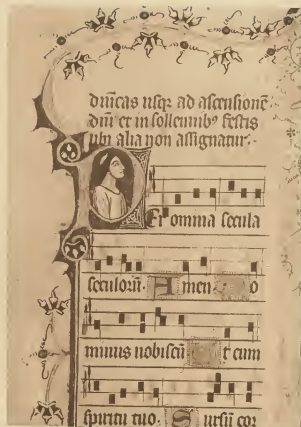 dnicas usqz ad ascensionē
dni et in sollennibꝰ festis
ubi alia non assignatur.
Per omnia secula
seculorū. Amen. Do
minus uobiscū Et cum
spiritu tuo. Sursū cor